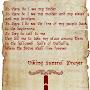 Lo there do I see my father
Lo there do I see my mother and my sisters
and my brothers
Lo there do I see the line of my people back
to the beginning
Lo they do call to me
They bid me to take my place among them
In the Hallowed Halls of Valhalla
Where the Brave shall live forever
Viking Funeral Prayer